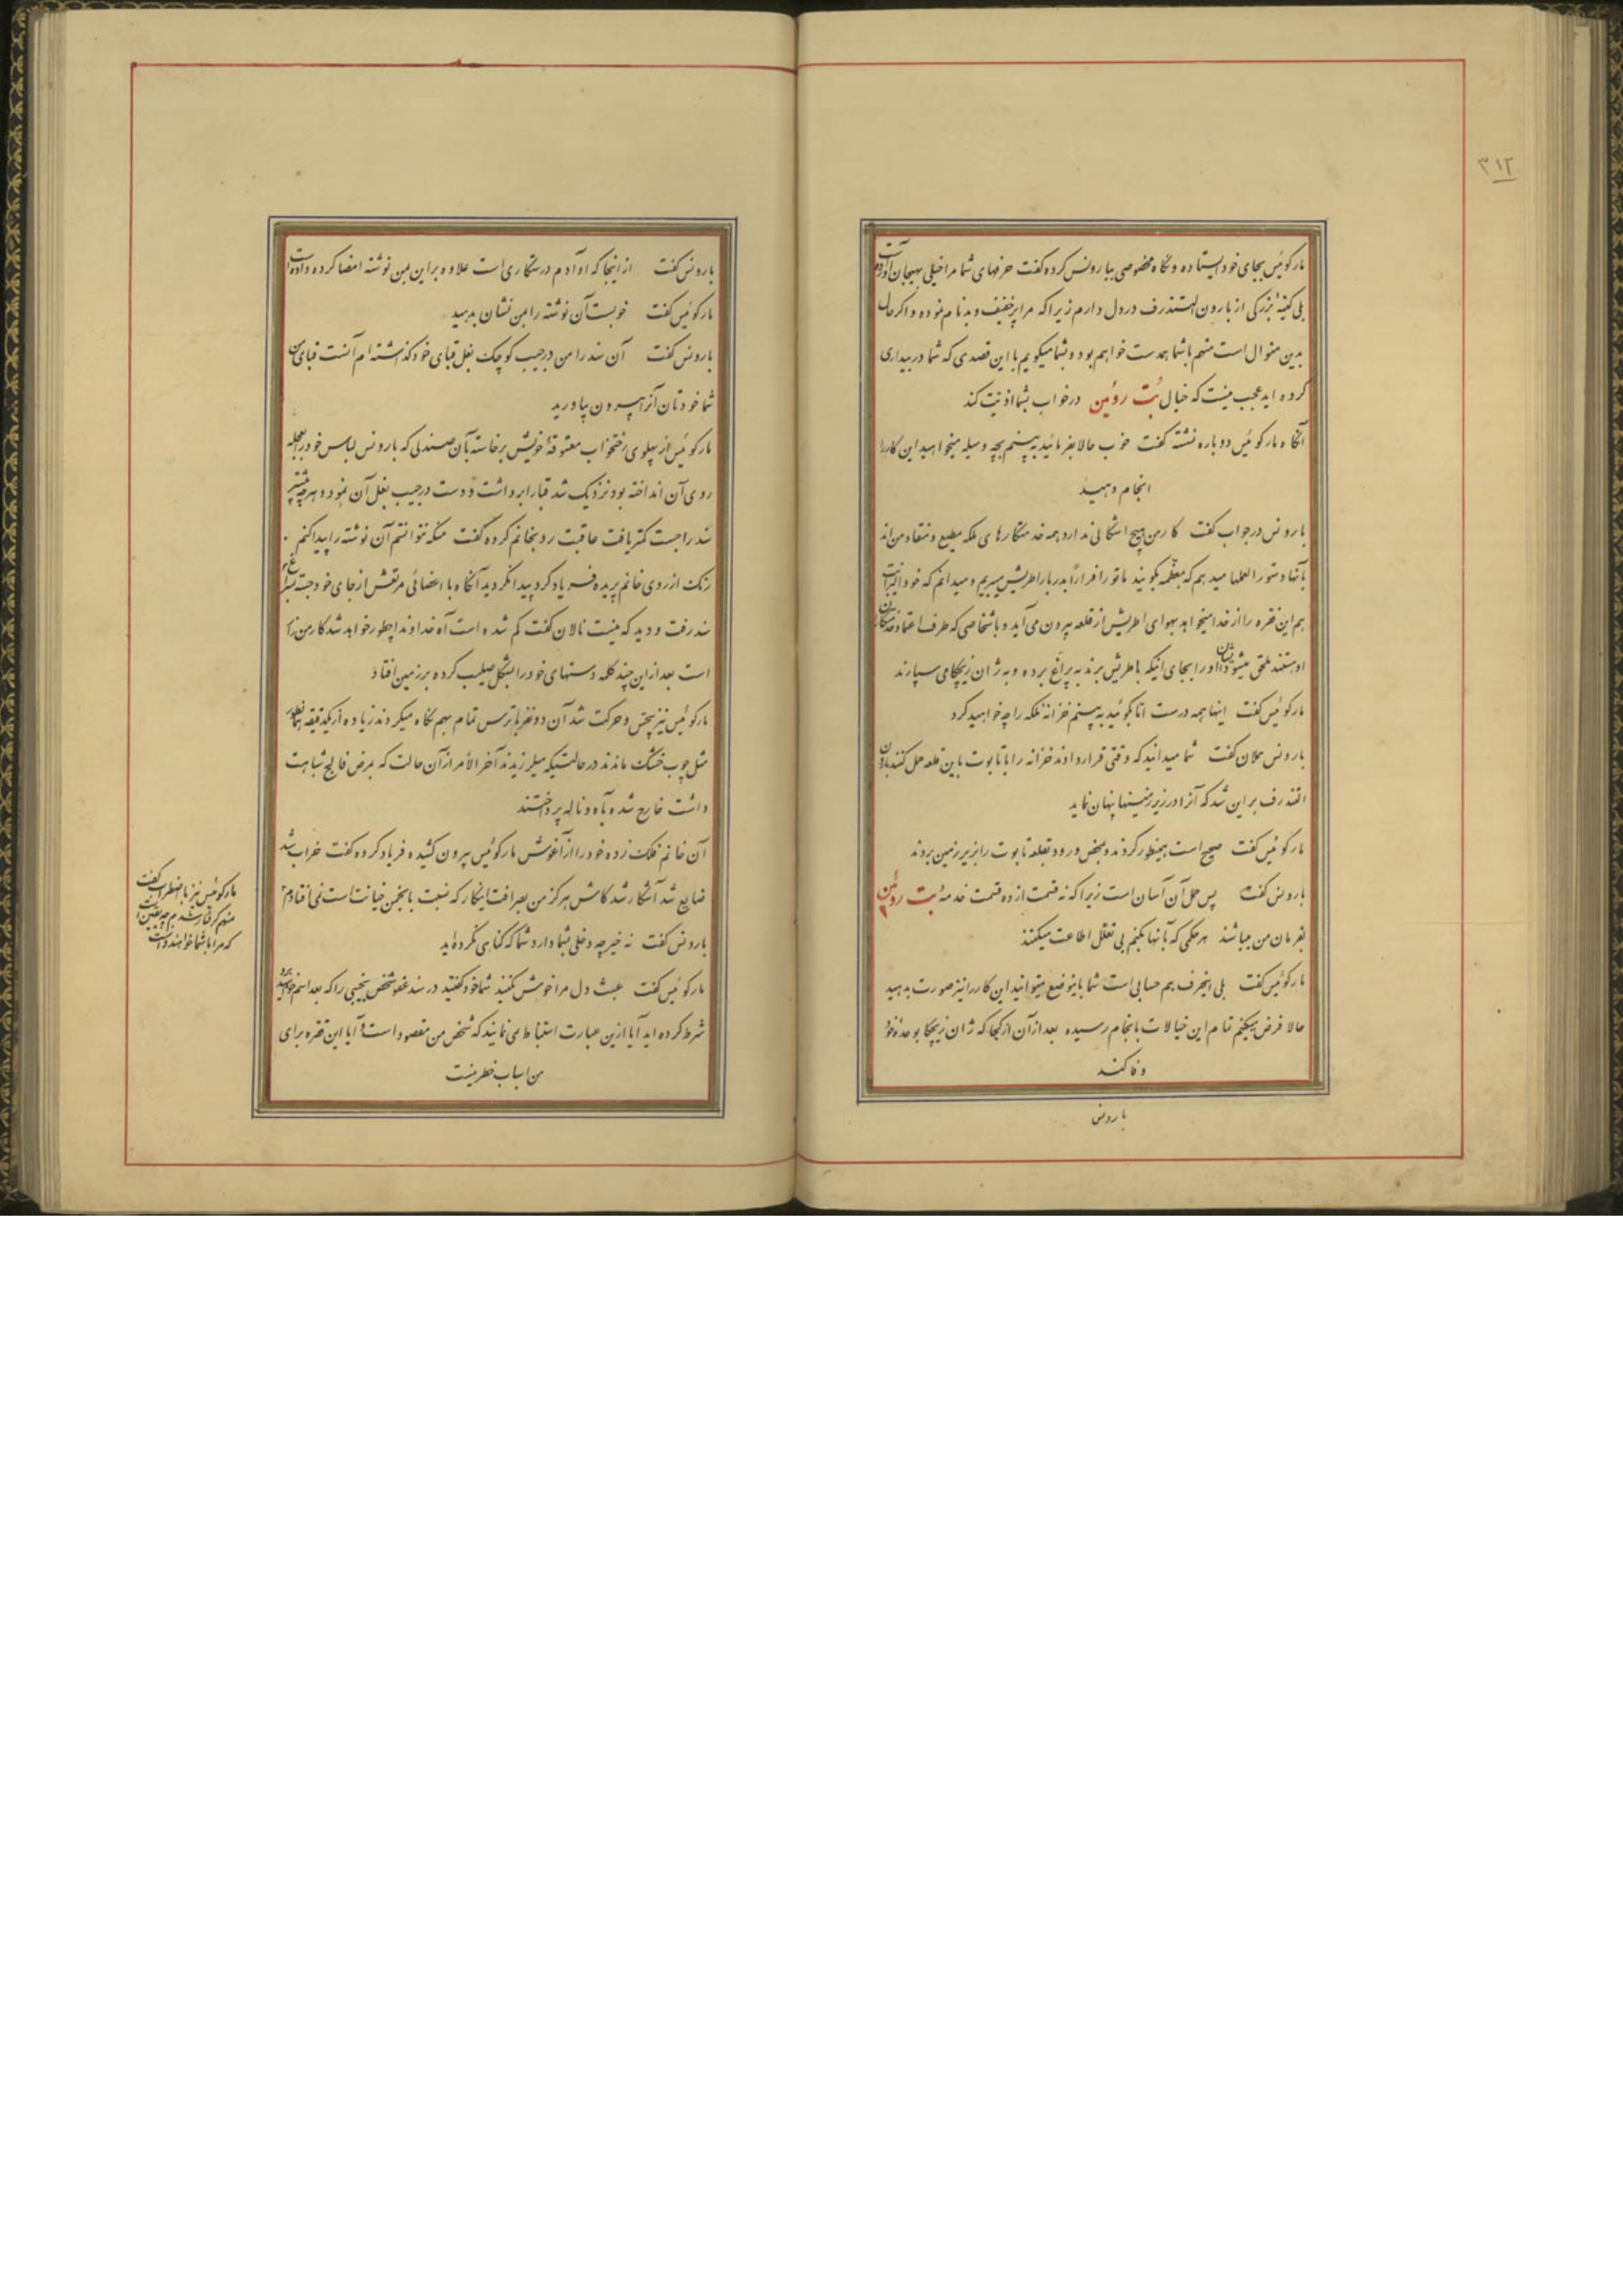 ۳۱۲
مارکوئیس بجای خود ایستاده و نگاه مخصوصی ببارونس کرده گفت حرفهای شما مرا خیلی بهیجان آورده است
بلی کینهٔ بزرگی از بارون التندرف در دل دارم زیرا که مرا خفیف و بدنام نموده و اگر حال
بدین منوال است منهم باشما همدست خواهم بود و بشما میگویم با این قصدی که شما در بیداری
کرده اید عجب نیست که خیال بُت روئین در خواب بشما اذیت کند
آنگاه مارکوئیس دوباره نشسته گفت خوب حالا بفرمائید به بینم بچه وسیله میخواهید این کار را
انجام دهید
بارونس در جواب گفت کار من هیچ اشکالی ندارد همه خدمتکارهای ملکه مطیع و منقاد من‌اند
بآنها دستورالعملها میدهم که بمعظّمه بگویند ما تو را فراراً بدربار اطریش میبریم و میدانم که خود الیزابت
هم این فقره را از خدا میخواهد بهوای اطریش از قلعه بیرون می‌آید و باشخاصی که طرف اعتماد خدمتکاران
او هستند ملحق میشود ایشان او را بجای اینکه باطریش برند به پراغ برده و به ژان زیچکا می سپارند
مارکوئیس گفت اینها همه درست امّا بگوئید به بینم خزانه ملکه را چه خواهید کرد
بارونس محیلان گفت شما میدانید که وقتی قرار دادند خزانه را با تابوت باین قلعه حمل کنند بارون
التندرف بر این شد که آنرا در زیر زمینها پنهان نماید
مارکوئیس گفت صحیح است همینطور کردند و بمحض ورود بقلعه تابوت را بزیر زمین بردند
بارونس گفت پس حمل آن آسان است زیرا که نه قسمت از ده قسمت خدمهٔ بُت روئین
بفرمان من میباشند هر حکمی که بآنها بکنم بی تعلل اطاعت میکنند
مارکوئیس گفت بلی اینحرف هم حسابی است شما باینوضع میتوانید این کار را نیز صورت بدهید
حالا فرض میکنم تمام این خیالات بانجام رسیده بعد از آن از کجا که ژان زیچکا بوعدهٔ خود
وفا کند
بارونس
بارونس گفت از اینجا که او آدم درستکاری است علاوه بر این بمن نوشته امضا کرده داده است
مارکوئیس گفت خوبست آن نوشته را بمن نشان بدهید
بارونس گفت آن سند را من در جیب کوچک بغل قبای خود گذاشته ام آنست قبای من
شما خودتان آنرا بیرون بیاورید
مارکوئیس از پهلوی رختخواب معشوقهٔ خویش برخاسته بآن صندلی که بارونس لباس خود را بعجله
روی آن انداخته بود نزدیک شد قبا را برداشت و دست در جیب بغل آن نمود و هر چه بیشتر
سند را جست کمتر یافت عاقبت رو بخانم کرده گفت منکه نتوانستم آن نوشته را پیدا کنم
رنگ از روی خانم پریده فریاد کرد پیدا نکردید آنگاه با اعضائی مرتعش از جای خود جسته بسراغ
سند رفت و دید که نیست نالان گفت گم شده است آه خداوندا چطور خواهد شد کار من زار
است بعد از این چند کلمه دستهای خود را بشکل صلیب کرده بر زمین افتاد
مارکوئیس نیز بیحس و حرکت شد آن دو نفر با ترس تمام بهم نگاه میکردند زیاده از یکدقیقه همانطور
مثل چوب خشک ماندند در حالتیکه میلرزیدند آخر الأمر از آن حالت که بمرض فالج شباهت
داشت خارج شده بآه و ناله پرداختند
آن خانم فلک زده خود را از آغوش مارکوئیس بیرون کشیده فریاد کرده گفت خراب شد
ضایع شد آشکار شد کاش هرگز من بصرافت اینکار که نسبت بانجمن خیانت است نمی افتادم
بارونس گفت نه خیر چه دخلی بشما دارد شما که گناهی نکرده اید
مارکوئیس گفت عبث دل مرا خوش نکنید شما خود گفتید در سند عفو شخص نجیبی را که بعد اسم خواهید برد
شرط کرده اید آیا ازین عبارت استنباط نمی نمایند که شخص من مقصود است و آیا این فقره برای
من اسباب خطر نیست
مارکوئیس نیز با اضطراب گفت
منهم گرفتار شدم چه یقین است
که مرا با شما خواهند دانست